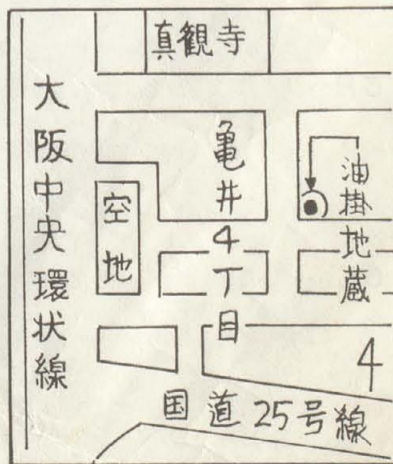 真観寺
大阪中央環状線
亀井4丁目
油掛地蔵
空地
4
国道25号線